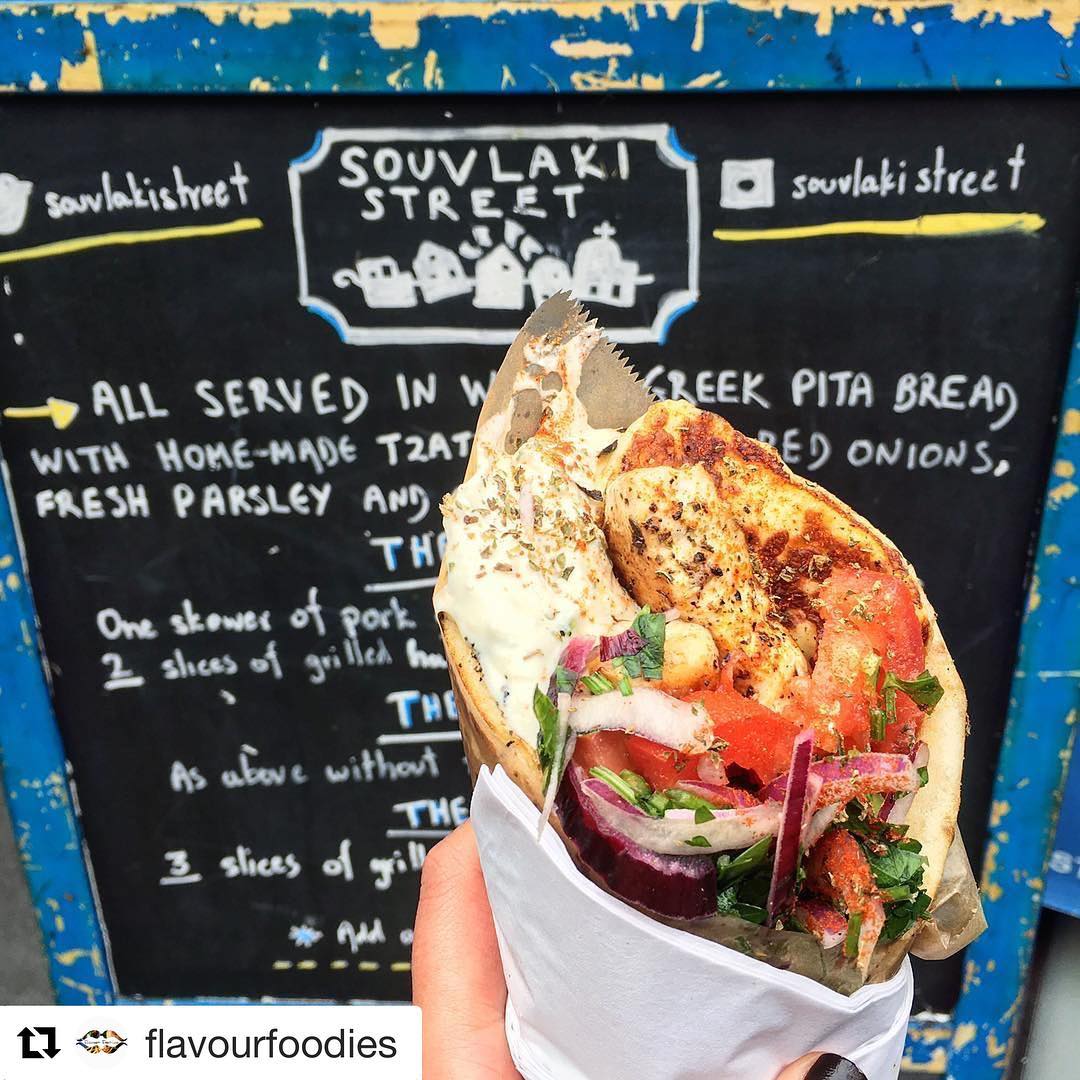 SOUVLAKI
STREET
souvlakistreet
souvlakistreet
ALL SERVED IN GREEK PITA BREAD
WITH HOME-MADE ONIONS,
FRESH PARSLEY AND
One skewer of pork
2 slices of grilled
As above without
THE
3 slices of
Add
flavourfoodies